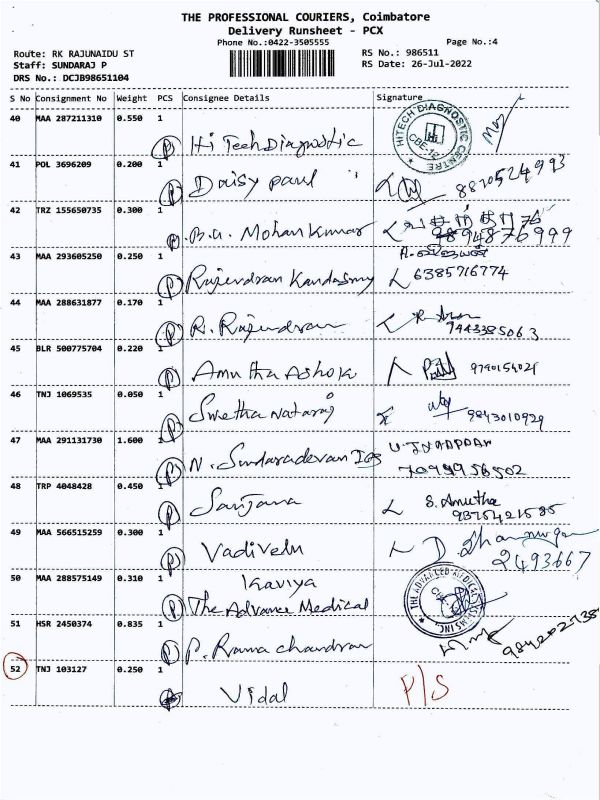 THE PROFESSIONAL COURIERS, Coimbatore
Delivery Runsheet - PCX
Phone No.:0422-3505555 Page No.:4
Route: RK RAJUNAIDU ST RS No.: 986511
Staff: SUNDARAJ P RS Date: 26-Jul-2022
DRS No.: DCJB98651104
S No Consignment No Weight PCS Consignee Details Signature
40 MAA 287211310 0.550 1
P Hi Tech Diagnostic HITECH DIAGNOSTIC CENTRE CBE-12
41 POL 3696209 0.200 1
P Daisy paul 8870524993
42 TRZ 155650735 0.300 1
P B.G. Mohan Kumar 9894876999
43 MAA 293605250 0.250 1
P Rajendran Kandasmy 6385716774
44 MAA 288631877 0.170 1
P R. Rajendran 7443385063
45 BLR 500775704 0.220 1
P Amutha Ashok 9790154021
46 TNJ 1069535 0.050 1
P Swetha Nataraj 9843010929
47 MAA 291131730 1.600 1
P N. Sundaradevan IAS
7099956502
48 TRP 4048428 0.450 1
P Sanjana S. Amutha
49 MAA 566515259 0.300 1
P Vadivelu D
2493667
50 MAA 288575149 0.310 1 Kaviya
P The Advance Medical THE ADVANCED MEDICAL
51 HSR 2450374 0.835 1
P P. Rama chandran
52 TNJ 103127 0.250 1
Vidal P/S